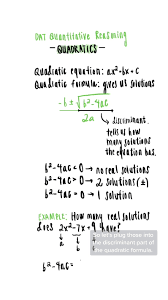 DAT Quantitative Reasoning
- QUADRATICS -
Quadratic equation: ax²-bx+c
Quadratic formula: gives us solutions
-b ± √b²-4ac
2a
discriminant
tells us how
many solutions
the equation has.
b²-4ac < 0 → no real solutions
b²-4ac > 0 → 2 solutions (±)
b²-4ac = 0 → 1 solution
EXAMPLE: How many real solutions
does 2x²-7x+9 have?
a b c
So let's plug those into
the discriminant part of
the quadratic formula.
b²-4ac =